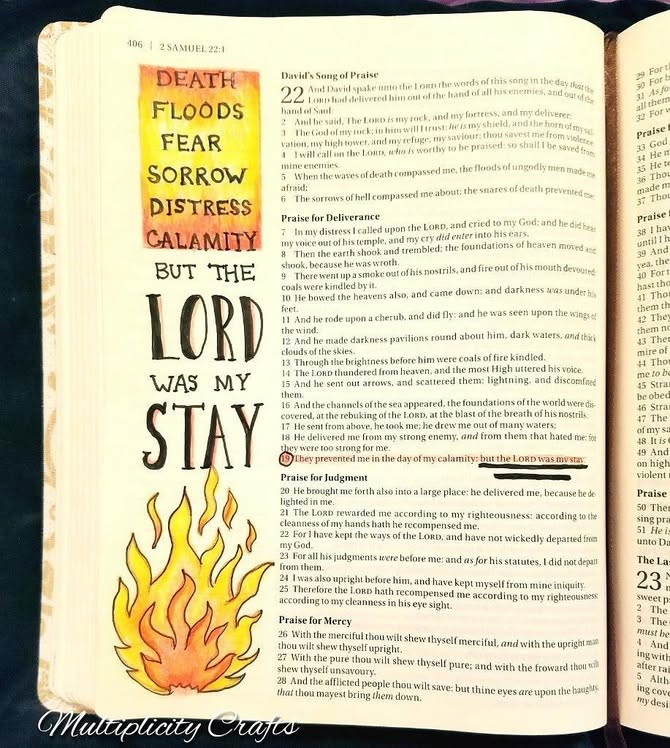 406 | 2 SAMUEL 22:1
DEATH
FLOODS
FEAR
SORROW
DISTRESS
CALAMITY
BUT THE
LORD
WAS MY
STAY
David's Song of Praise
22 And David spake unto the LORD the words of this song in the day that the
LORD had delivered him out of the hand of all his enemies, and out of the
hand of Saul:
2 And he said, The LORD is my rock, and my fortress, and my deliverer;
3 The God of my rock; in him will I trust: he is my shield, and the horn of my sal-
vation, my high tower, and my refuge, my saviour; thou savest me from violence.
4 I will call on the LORD, who is worthy to be praised: so shall I be saved from
mine enemies.
5 When the waves of death compassed me, the floods of ungodly men made me
afraid;
6 The sorrows of hell compassed me about; the snares of death prevented me;
Praise for Deliverance
7 In my distress I called upon the LORD, and cried to my God: and he did hear
my voice out of his temple, and my cry did enter into his ears.
8 Then the earth shook and trembled; the foundations of heaven moved and
shook, because he was wroth.
9 There went up a smoke out of his nostrils, and fire out of his mouth devoured:
coals were kindled by it.
10 He bowed the heavens also, and came down; and darkness was under his
feet.
11 And he rode upon a cherub, and did fly: and he was seen upon the wings of
the wind.
12 And he made darkness pavilions round about him, dark waters, and thick
clouds of the skies.
13 Through the brightness before him were coals of fire kindled.
14 The LORD thundered from heaven, and the most High uttered his voice.
15 And he sent out arrows, and scattered them; lightning, and discomfited
them.
16 And the channels of the sea appeared, the foundations of the world were dis-
covered, at the rebuking of the LORD, at the blast of the breath of his nostrils.
17 He sent from above, he took me; he drew me out of many waters;
18 He delivered me from my strong enemy, and from them that hated me: for
they were too strong for me.
19 They prevented me in the day of my calamity: but the LORD was my stay.
Praise for Judgment
20 He brought me forth also into a large place: he delivered me, because he de-
lighted in me.
21 The LORD rewarded me according to my righteousness: according to the
cleanness of my hands hath he recompensed me.
22 For I have kept the ways of the LORD, and have not wickedly departed from
my God.
23 For all his judgments were before me: and as for his statutes, I did not depart
from them.
24 I was also upright before him, and have kept myself from mine iniquity.
25 Therefore the LORD hath recompensed me according to my righteousness;
according to my cleanness in his eye sight.
Praise for Mercy
26 With the merciful thou wilt shew thyself merciful, and with the upright man
thou wilt shew thyself upright.
27 With the pure thou wilt shew thyself pure; and with the froward thou wilt
shew thyself unsavoury.
28 And the afflicted people thou wilt save: but thine eyes are upon the haughty,
that thou mayest bring them down.
Multiplicity Crafts
29 For
30 For
31 As
32 For
33 God
34 He m
35 He te
36 Thou
37 Thou
38 I hav
39 And
40 For
41 Thou
42 They
43 Then
44 Thou
45 Stran
46 Stran
47 The
48 It is
49 And
50 Ther
51 He is
unto Da
23